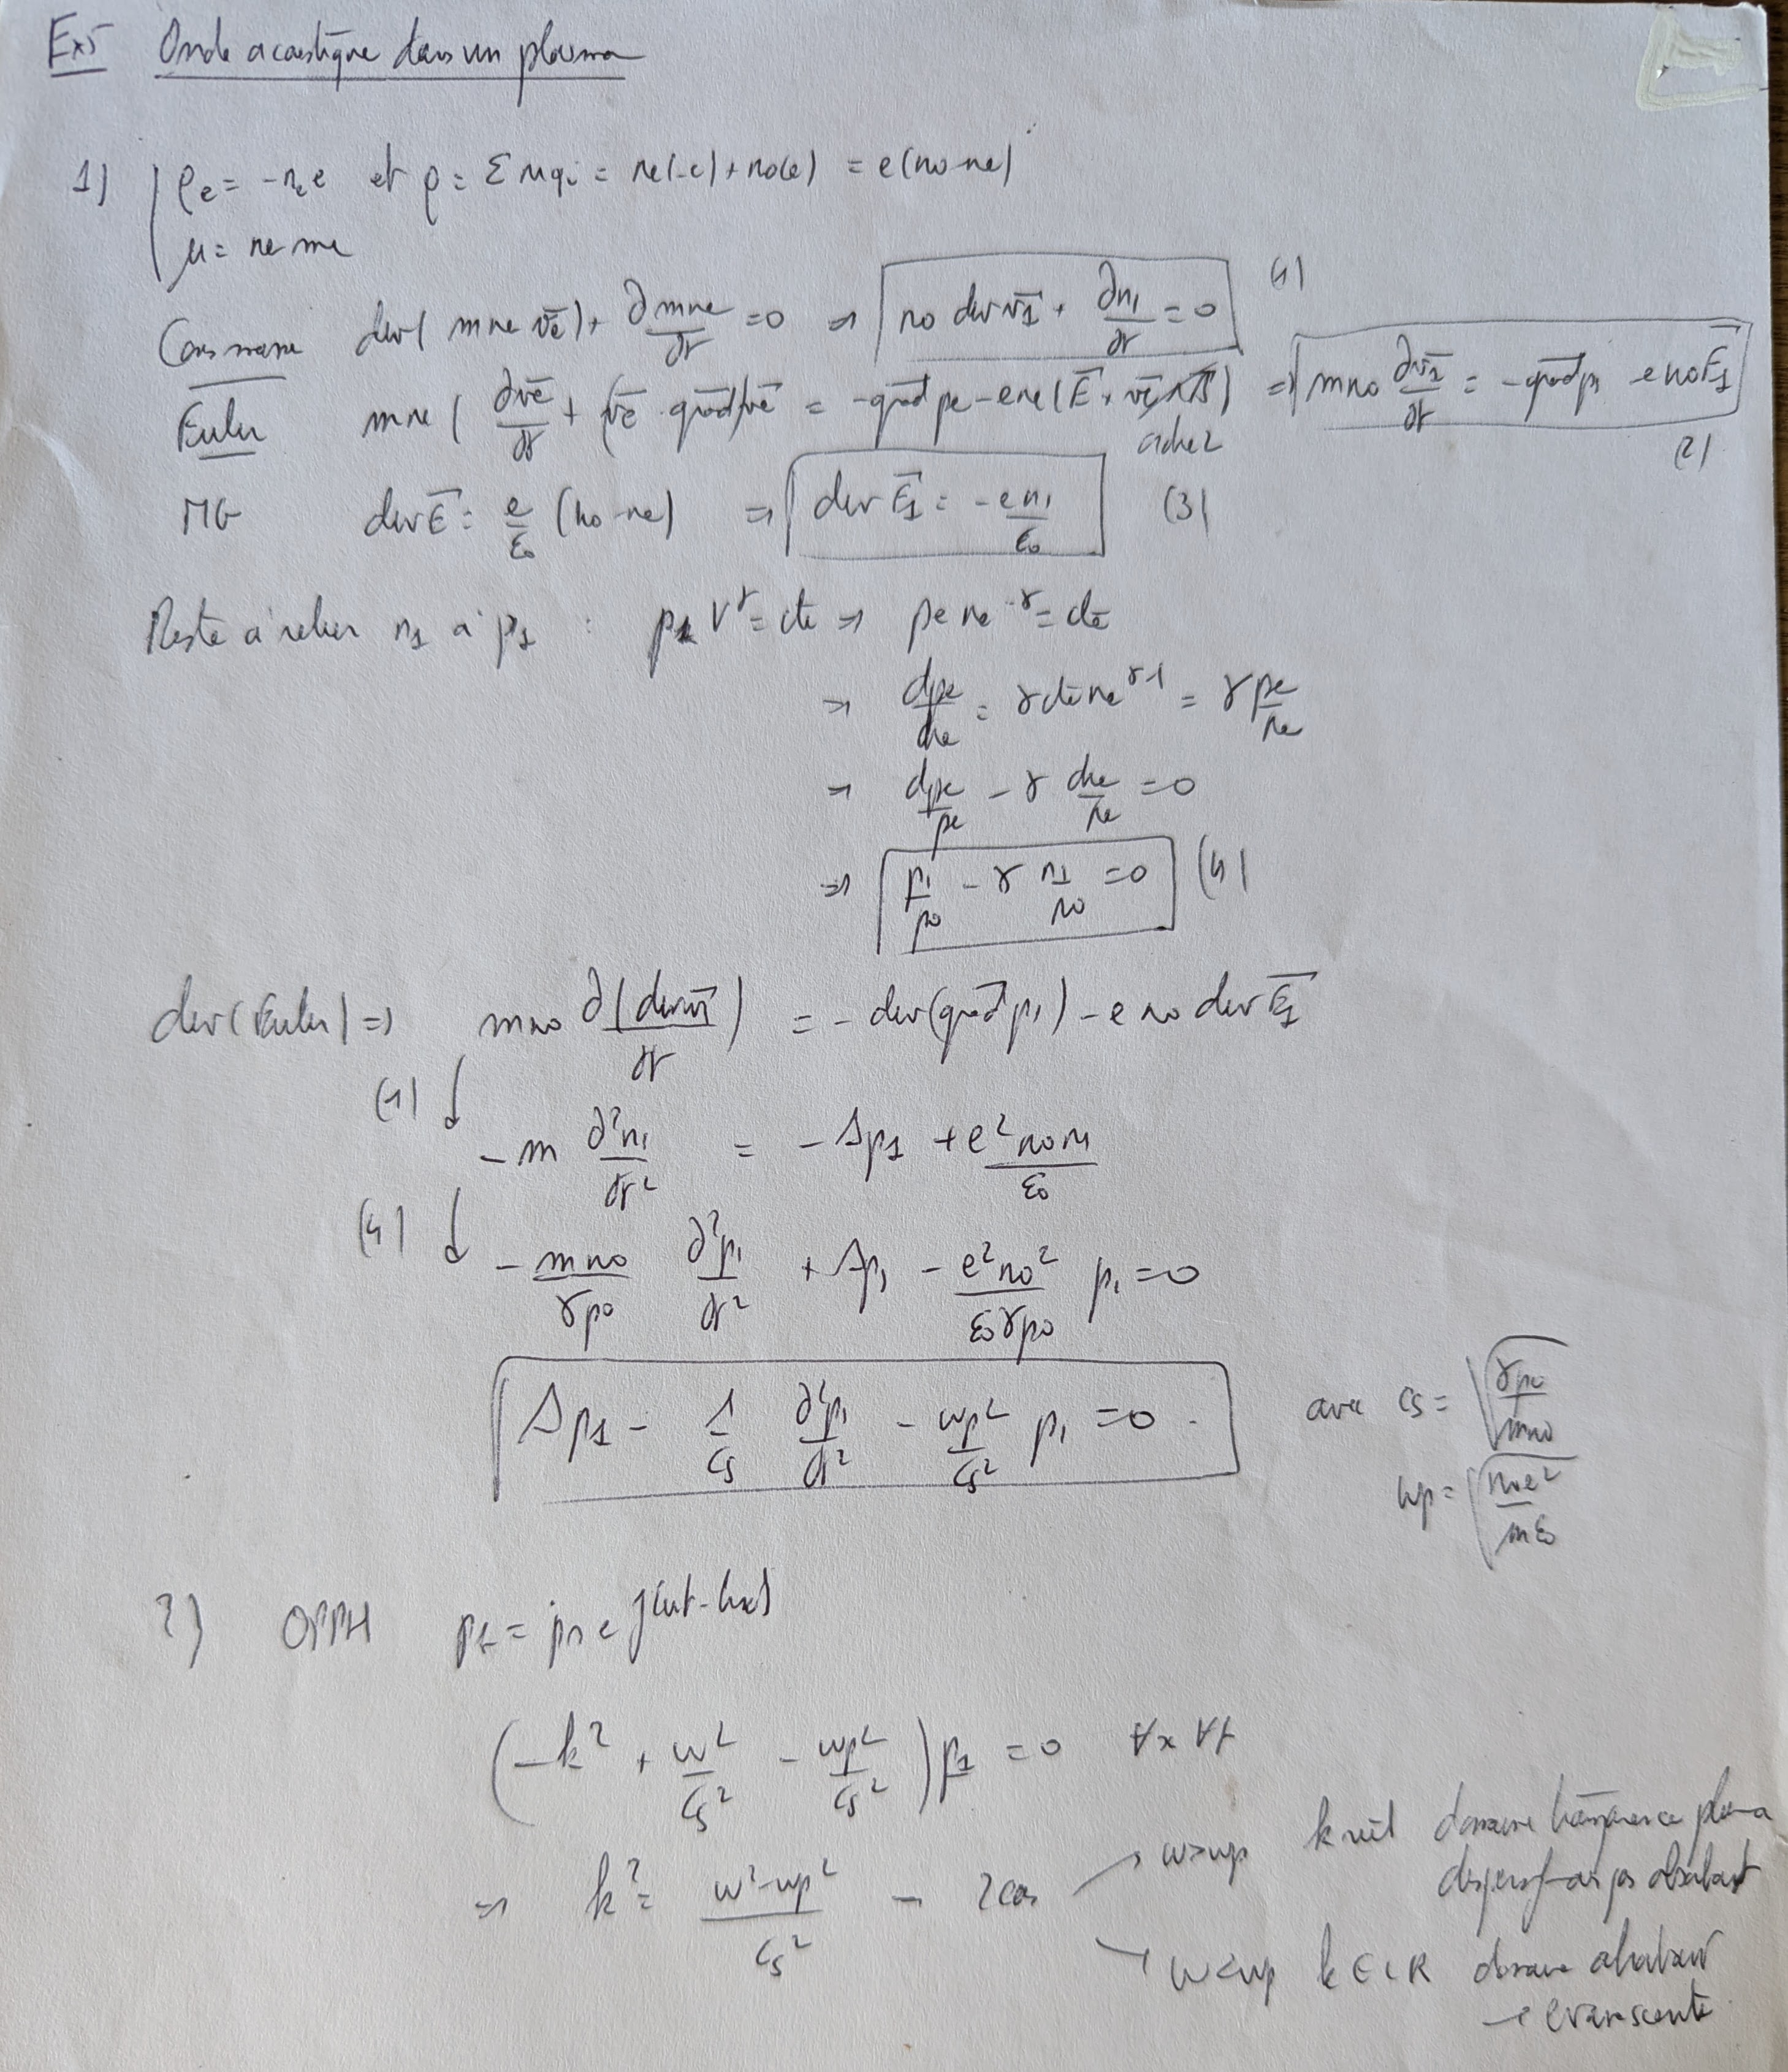 Ex5 Onde acoustique dans un plasma
1) ρe = -ne e et ρ = Σ ni qi = ne(-e) + n0(e) = e(n0-ne)
μ = ne me
Cons masse div(m ne ve) + ∂mne/∂t = 0 ⇒ n0 div v1 + ∂n1/∂t = 0 (1)
Euler mne(∂ve/∂t + (ve · grad)ve = -grad pe - ene(E + ve ∧ B) ⇒ mn0 ∂v1/∂t = -grad p1 - en0E1 (2)
ordre 2
MG div E = e/ε0 (n0-ne) ⇒ div E1 = -e n1/ε0 (3)
Reste à relier n1 à p1 : p V^γ = cte ⇒ pe ne^-γ = cte
⇒ dpe/dne = γ cte ne^γ-1 = γ pe/ne
⇒ dpe/pe - γ dne/ne = 0
⇒ p1/p0 - γ n1/n0 = 0 (4)
div(Euler) ⇒ mn0 ∂(div v1)/∂t = -div(grad p1) - e n0 div E1
(1) ↓ -m ∂²n1/∂t² = -Δp1 + e²n0n1/ε0
(4) ↓ -mn0/γp0 ∂²p1/∂t² + Δp1 - e²n0²/ε0γp0 p1 = 0
Δp1 - 1/cs ∂²p1/∂t² - ωp²/cs² p1 = 0 . avec cs = √(γp0/mn0)
ωp = √(n0e²/mε0)
2) OPPH p1 = p1 e^j(ωt-kx)
(-k² + ω²/cs² - ωp²/cs²)p1 = 0 ∀x ∀t
⇒ k² = ω²-ωp²/cs² → 2 cas
↗ ω>ωp k réel domaine transparence plasma
dispersif mais pas absorbant
↘ ω<ωp k∈iR domaine
→ evanescente